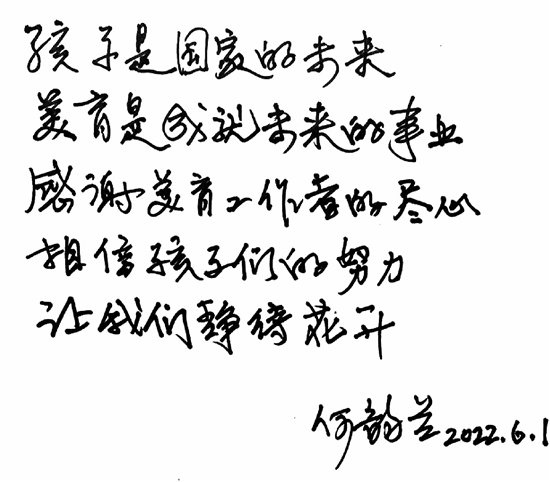 孩子是国家的未来
美育是成就未来的事业
感谢美育工作者的尽心
相信孩子们的努力
让我们静待花开
何韵兰 2022.6.1